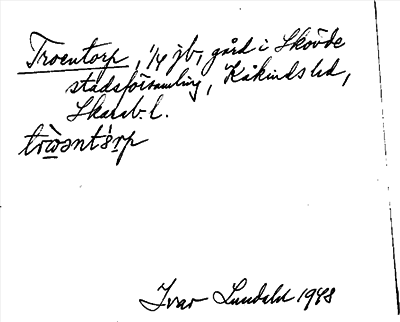 Troentorp, 1/4 jb, gård i Skövde
stadsförsamling, Kåkinds hd,
Skarab. l.
Ivar Lundahl 1948